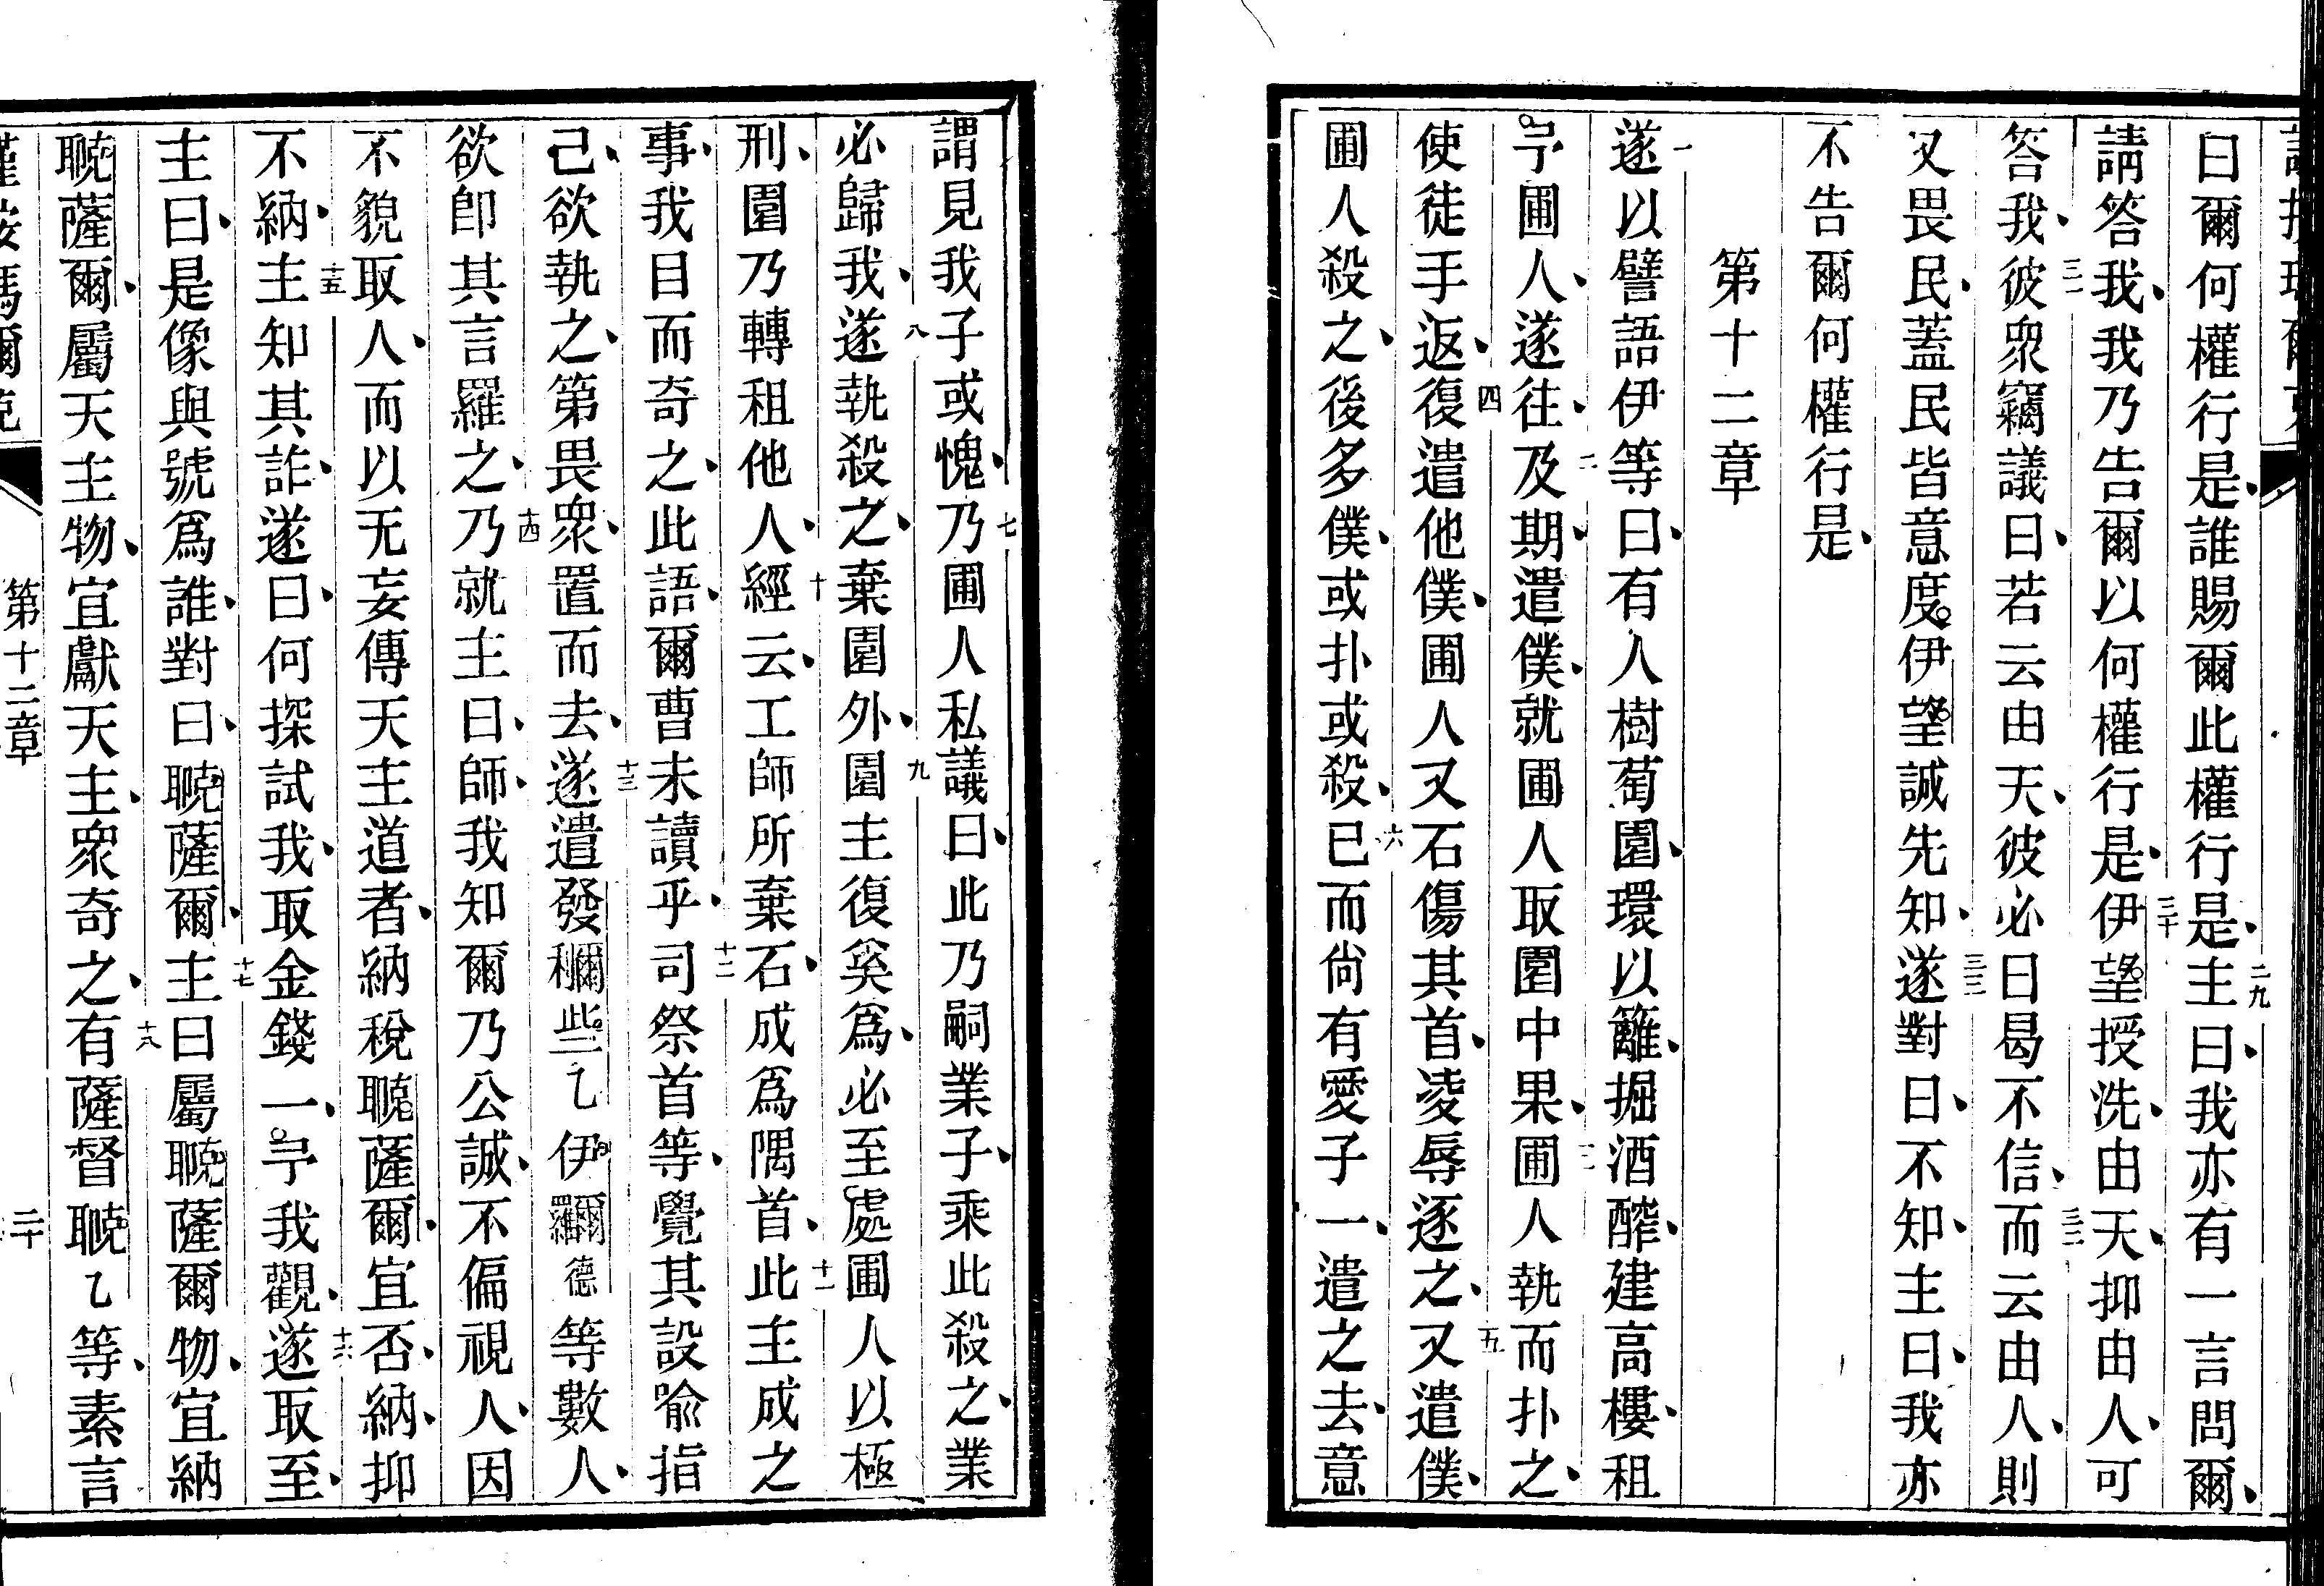 曰爾何權行是、誰賜爾此權行是、二九主曰、我亦有一言問爾、
請答我、我乃告爾以何權行是、三十伊望授洗、由天、抑由人、可
答我、三一彼衆竊議曰、若云由天、彼必曰曷不信、三二而云由人、則
又畏民、蓋民皆意度伊望誠先知、三三遂對曰、不知、主曰、我亦
不告爾何權行是、
第十二章
一遂以譬語伊等曰、有人樹萄園、環以籬、掘酒醡、建高樓、租
予圃人、遂往、二及期、遣僕、就圃人取園中果、三圃人執而扑之、
使徒手返、四復遣他僕、圃人又石傷其首、凌辱逐之、五又遣僕、
圃人殺之、後多僕、或扑或殺、六已而尙有愛子一、遣之去、意
謂見我子或愧、七乃圃人私議曰、此乃嗣業子、乘此殺之、業
必歸我、八遂執殺之、棄園外、九園主復奚爲、必至處圃人以極
刑、園乃轉租他人、十經云、工師所棄石、成爲隅首、十一此主成之
事、我目而奇之、此語、爾曹未讀乎、十二司祭首等、覺其設喻指
己、欲執之、第畏衆、置而去、十三遂遣發利爾些乙伊羅爾德等數人、
欲卽其言羅之、十四乃就主曰、師、我知爾乃公誠、不偏視人、因
不貌取人、而以无妄傳天主道者、納稅聭薩爾、宜否、納、抑
不納、十五主知其詐、遂曰、何探試我、取金錢一、予我觀、十六遂取至、
主曰、是像與號爲誰、對曰、聭薩爾、十七主曰、屬聭薩爾物、宜納
聭薩爾、屬天主物、宜獻天主、衆奇之、十八有薩督聭乙等、素言
第十二章
二十